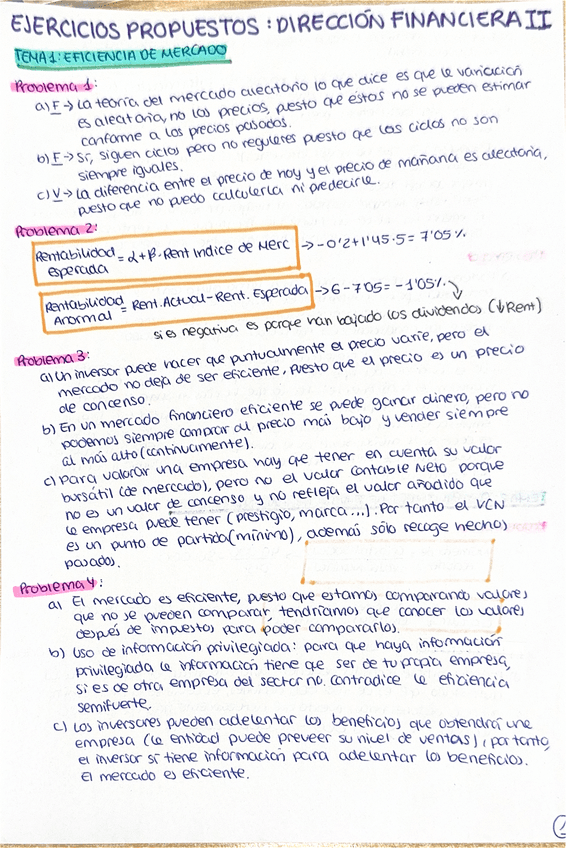 EJERCICIOS PROPUESTOS: DIRECCIÓN FINANCIERA II
TEMA 1: EFICIENCIA DE MERCADO
Problema 1:
a) F → La teoría del mercado aleatorio lo que dice es que la variación
es aleatoria, no los precios, puesto que éstos no se pueden estimar
conforme a los precios pasados.
b) F → Sí, siguen ciclos pero no regulares puesto que los ciclos no son
siempre iguales.
c) V → La diferencia entre el precio de hoy y el precio de mañana es aleatoria,
puesto que no puedo calcularla ni predecirla.
Problema 2:
Rentabilidad Esperada = α + β · Rent Indice de Merc → -0'2 + 1'45 · 5 = 7'05 %
Rentabilidad Anormal = Rent. Actual - Rent. Esperada → 6 - 7'05 = -1'05 %
si es negativa es porque han bajado los dividendos (↓Rent)
Problema 3:
a) Un inversor puede hacer que puntualmente el precio varíe, pero el
mercado no deja de ser eficiente, puesto que el precio es un precio
de concenso.
b) En un mercado financiero eficiente se puede ganar dinero, pero no
podemos siempre comprar al precio más bajo y vender siempre
al más alto (continuamente).
c) Para valorar una empresa hay que tener en cuenta su valor
bursátil (de mercado), pero no el valor contable Neto porque
no es un valor de concenso y no refleja el valor añadido que
la empresa puede tener (prestigio, marca...). Por tanto el VCN
es un punto de partida (mínimo), además sólo recoge hechos
pasados.
Problema 4:
a) El mercado es eficiente, puesto que estamos comparando valores
que no se pueden comparar, tendríamos que conocer los valores
después de impuestos para poder compararlos.
b) Uso de información privilegiada: para que haya información
privilegiada la información tiene que ser de tu propia empresa,
si es de otra empresa del sector no. contradice la eficiencia
semifuerte.
c) Los inversores pueden adelantar los beneficios que obtendrá una
empresa (la entidad puede preveer su nivel de ventas), por tanto,
el inversor sí tiene información para adelantar los beneficios.
El mercado es eficiente.